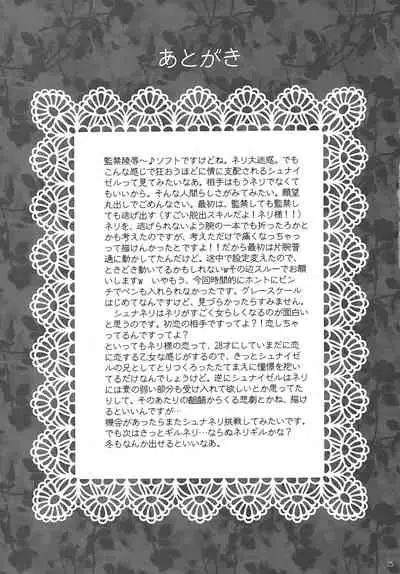 あとがき
監禁陵辱～♪ソフトですけどね。ネリ大迷惑。でも
こんな感じで狂おうほどに情に支配されるシュナイ
ゼルって見てみたいなあ。相手はもうネリでなくて
もいいから。そんな人間らしさがみてみたい。願望
丸出しでごめんなさい。最初は、監禁しても監禁し
ても逃げ出す(すごい脱出スキルだよ!ネリ様!!)
ネリを、逃げられないよう腕の一本でも折ったろかと
も考えたのですが、考えただけで痛くなっちゃっ
て描けんかったですよ!!だから最初は片腕普
通に動かしてたんだけど。途中で設定変えたので、
ときどき動いてるかもしれないwその辺スルーでお願
いしますw いやもう、今回時間的にホントにピン
チでペンも入れられなかったです。グレースケール
はじめてなんですけど、見づらかったらすみません。
シュナネリはネリがすごく女らしくなるのが面白い
と思うのです。初恋の相手ですってよ?!恋しちゃ
ってるんですってよ?
といってもネリ様の恋って、28才にしていまだに恋
に恋する乙女な感じがするので、きっとシュナイゼ
ルの兄としてとりつくろったたてまえに憧憬を抱い
てるだけなんでしょうけど。逆にシュナイゼルはネリ
には素の弱い部分も受け入れて欲しいとか思ってた
りして、そのあたりの齟齬からくる悲劇とかね、描け
るといいんですが…
機会があったらまたシュナネリ挑戦してみたいです。
でも次はきっとギルネリ…ならぬネリギルかな?
冬もなんか出せるといいなあ。
25